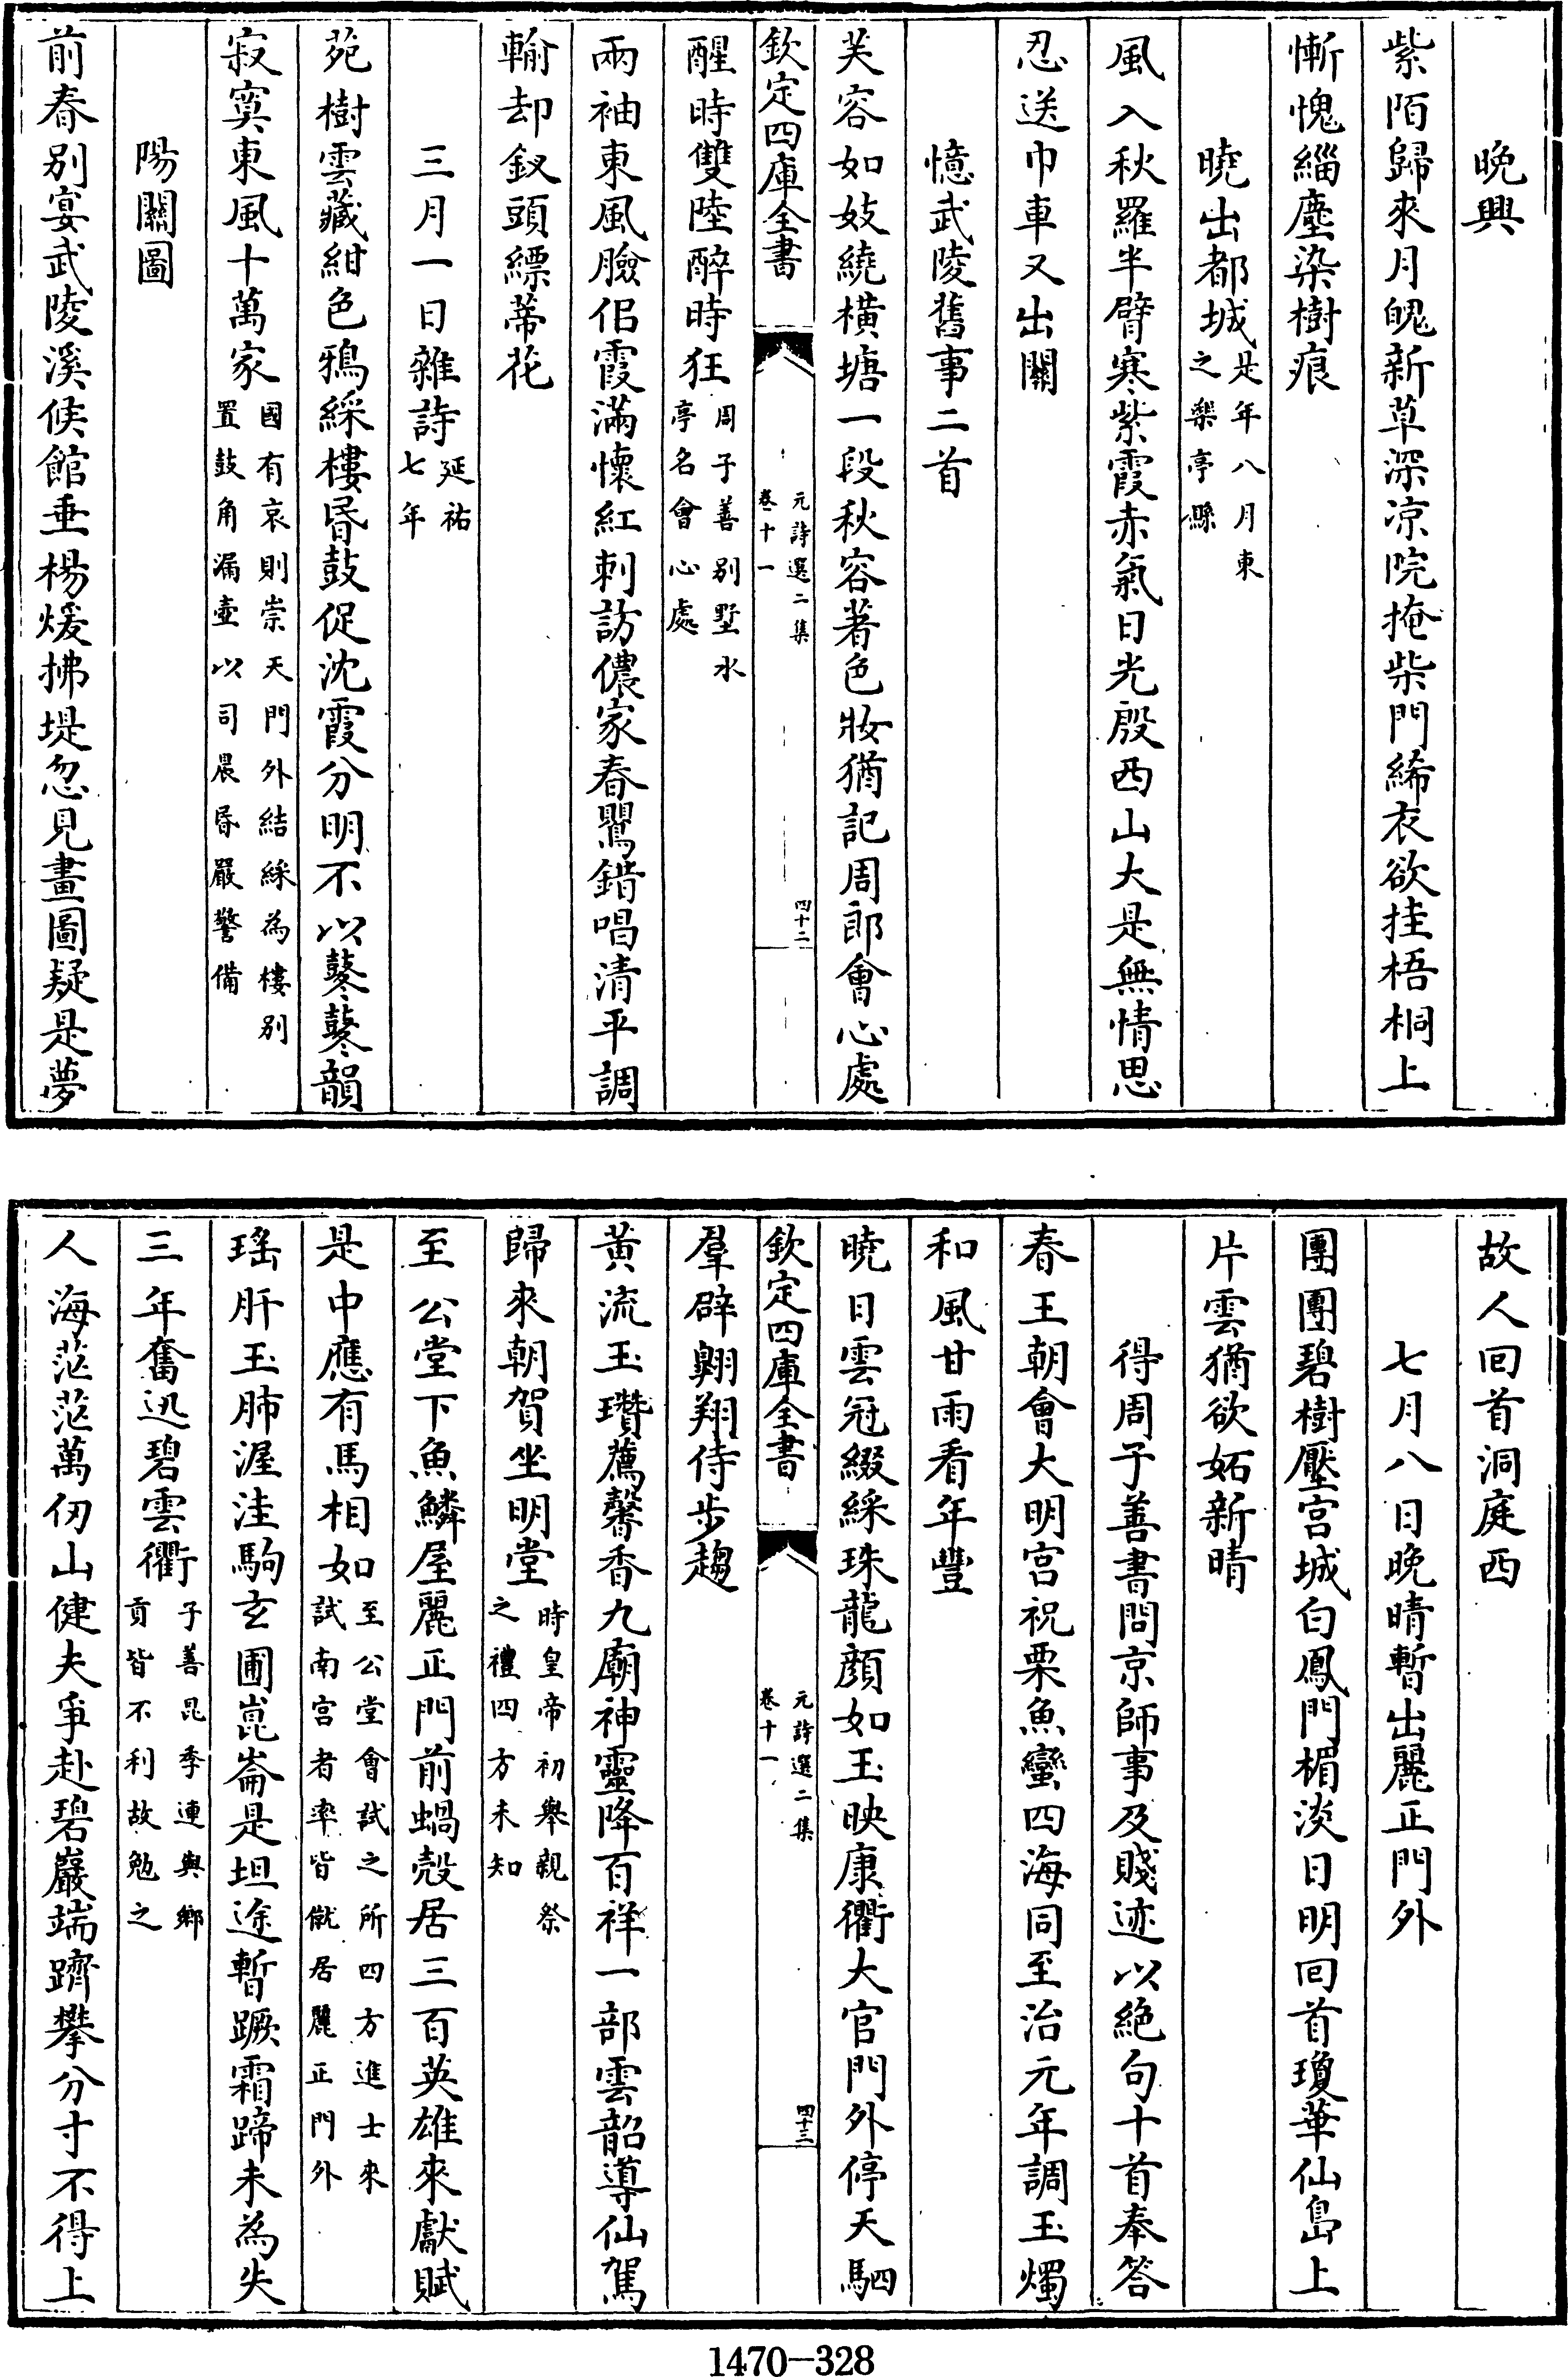 晚興
紫陌歸來月魄新草深凉院掩柴門絺衣欲挂梧桐上
慚愧緇塵染樹痕
曉出都城是年八月東之樂亭縣
風入秋羅半臂寒紫霞赤氣日光殷西山大是無情思
忍送巾車又出關
憶武陵舊事二首
芙容如妓繞橫塘一段秋容著色妝猶記周郎會心處
欽定四庫全書 元詩選二集 卷十一 四十二
醒時雙陸醉時狂周子善别墅水亭名會心處
兩袖東風臉佀霞滿懷紅刺訪儂家春鸎錯唱清平調
輸却釵頭縹蒂花
三月一日雜詩延祐七年
苑樹雲藏紺色鴉綵樓昏鼓促沈霞分明不以鼕鼕韻
寂寞東風十萬家國有哀則崇天門外結綵為樓别置鼓角漏壺以司晨昏嚴警備
陽關圖
前春别宴武陵溪候館垂楊煖拂堤忽見畫圖疑是夢
故人回首洞庭西
七月八日晚晴暫出麗正門外
團團碧樹壓宫城白鳳門楣淡日明回首瓊華仙島上
片雲猶欲妬新晴
得周子善書問京師事及賤迹以絶句十首奉答
春王朝會大明宫祝栗魚蠻四海同至治元年調玉燭
和風甘雨看年豐
曉日雲冠綴綵珠龍顔如玉映康衢大官門外停天駟
欽定四庫全書 元詩選二集 卷十一 四十三
羣辟翺翔侍步趨
黄流玉瓚薦馨香九廟神靈降百祥一部雲韶導仙駕
歸來朝賀坐明堂時皇帝初舉親祭之禮四方未知
至公堂下魚鱗屋麗正門前蝸殼居三百英雄來獻賦
是中應有馬相如至公堂會試之所四方進士來試南宫者率皆僦居麗正門外
瑤肝玉肺渥洼駒玄圃崑崙是坦途暫蹶霜蹄未為失
三年奮迅碧雲衢子善昆季連與鄉貢皆不利故勉之
人海茫茫萬仞山健夫爭赴碧巖端躋攀分寸不得上
1470—328